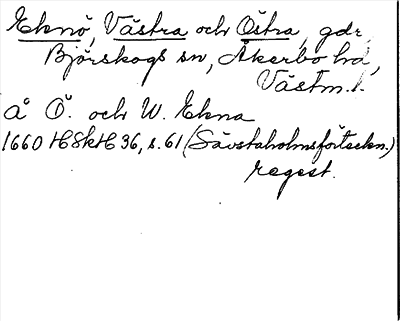 Eknö, Västra och Östra, gdr,
Björskogs sn, Åkerbo hd,
Västm. l.
å Ö. och W. Ekna
1660 HSkH 36, s. 61 (Sävstaholmsförteckn.)
regest.